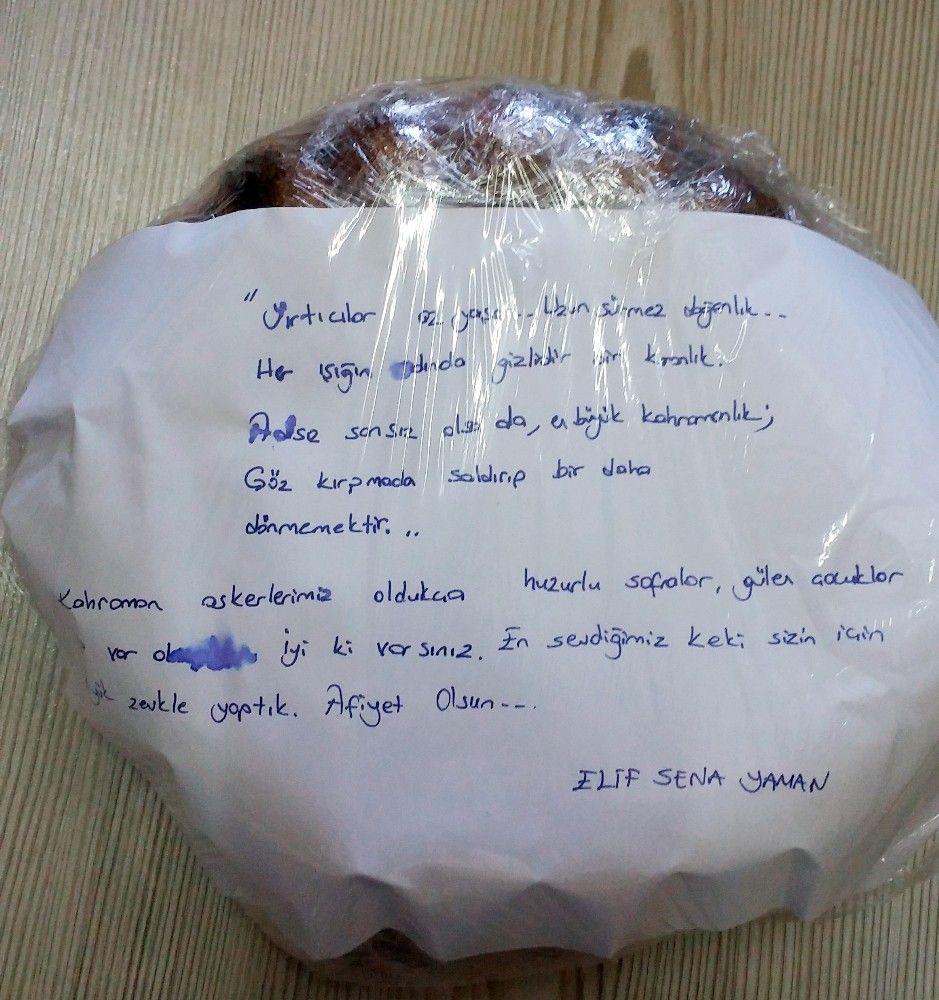 "Yırtıcılar az yaşar.. Uzun sürmez doğanlık...
Her ışığın ardında gizlidir bir karanlık.
Adsız sansız olsa da, en büyük kahramanlık;
Göz kırpmada saldırıp bir daha
dönmemektir...
Kahraman askerlerimiz oldukça huzurlu sofralar, gülen çocuklar
var İyi ki varsınız. En sevdiğimiz keki sizin için
zevkle yaptık. Afiyet Olsun---.
ELİF SENA YAMAN